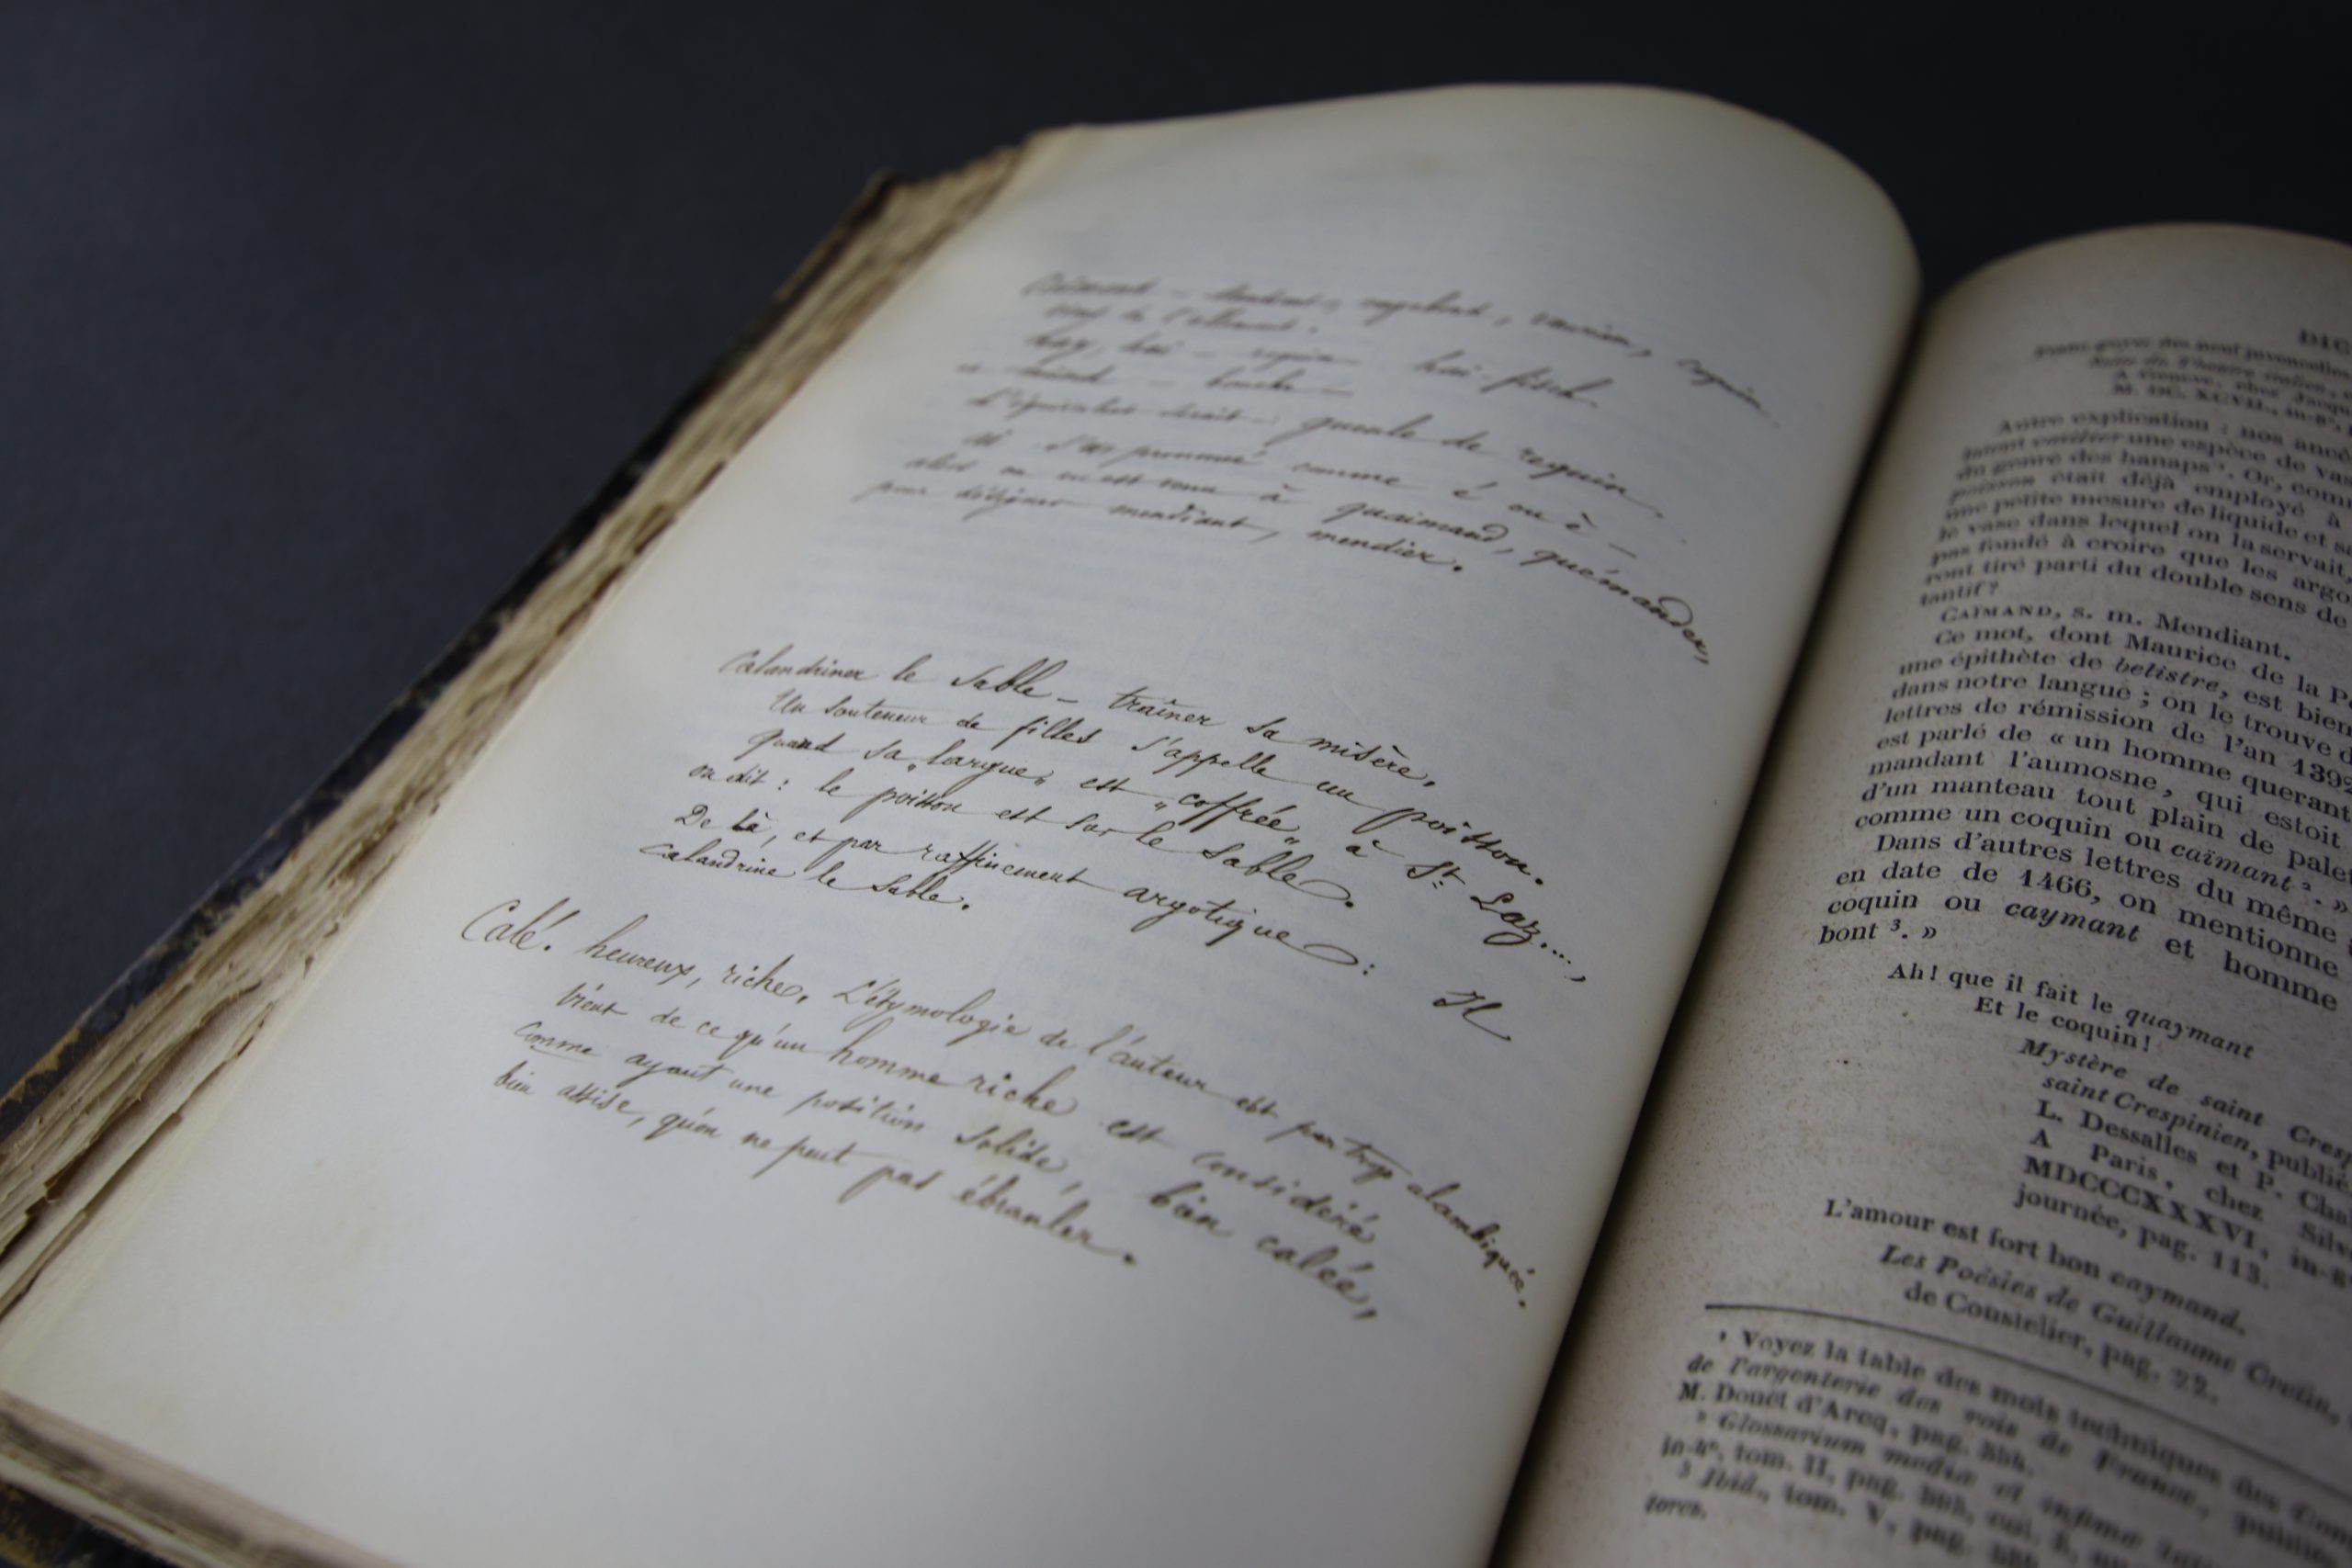 vient de l'allemand.
hay, hai – requin hai-fisch.
L'équivalent serait – gueule de requin.
ai s'est prononcé comme é ou è –
alors on en est venu à quaimand, quémander,
pour désigner mendiant, mendier.
Calandriner le sable – traîner sa misère.
Un souteneur de filles s'appelle un poisson.
Quand sa „largue„ est „coffrée„ à St Laz...,
on dit : le poisson est sur le sable.
De là, et par raffinement argotique :
calandrine le sable. H
Calé. heureux, riche. L'étymologie de l'auteur est par trop alambiquée.
Vient de ce qu'un homme riche est considéré
comme ayant une position solide, bien calée,
bien assise, qu'on ne peut pas ébranler.
DIC
A Genève, chez Jacqu
M. DC. XCVII., in-8°,
Autre explication : nos ancê
une espèce de va
du genre des hanaps. Or, com
poisson était déjà employé à
une petite mesure de liquide et s
le vase dans lequel on la servait,
pas fondé à croire que les argo
ront tiré parti du double sens de
tantif?
CAÏMAND, s. m. Mendiant.
Ce mot, dont Maurice de la P
une épithète de belistre, est bien
dans notre langue ; on le trouve d
lettres de rémission de l'an 1392
est parlé de « un homme querant
mandant l'aumosne, qui estoit
d'un manteau tout plain de palet
comme un coquin ou caïmant ². »
Dans d'autres lettres du même
en date de 1466, on mentionne
coquin ou caymant et homme
bont ³. »
Ah! que il fait le quaymant
Et le coquin!
Mystère de saint Cresp
saint Crespinien, publié
L. Dessalles et P. Cha
A Paris, chez Silv
MDCCCXXXVI, in-8
journée, pag. 113.
L'amour est fort bon caymand.
Les Poésies de Guillaume Cretin,
de Coustelier, pag. 22.
¹ Voyez la table des mots techniques des Com
de l'argenterie des rois de France,
M. Douët d'Arcq, pag.
² Glossarium mediæ et infimæ
in-4°, tom. II, pag.
³ Ibid., tom. V, pag.
tores.